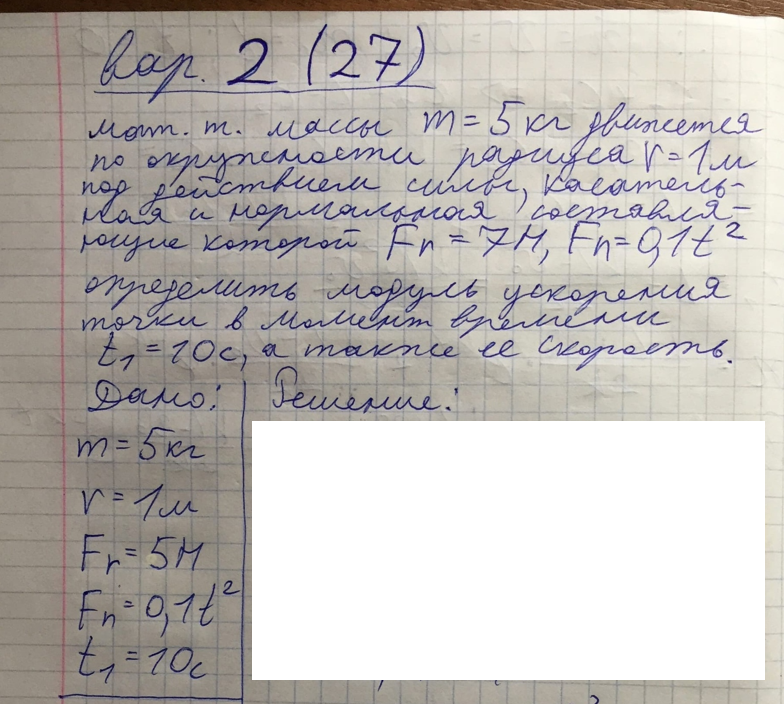 вар. 2 (27)
мат. т. массы m = 5 кг движется
по окружности радиуса r = 1 м
под действием силы, касатель-
ная и нормальная составля-
ющие которой Fτ = 7 Н, Fn = 0,1t²
определить модуль ускорения
точки в момент времени
t₁ = 10с, а также её скорость.
Дано: Решение:
m = 5 кг
r = 1 м
Fτ = 5 Н
Fn = 0,1t²
t₁ = 10с